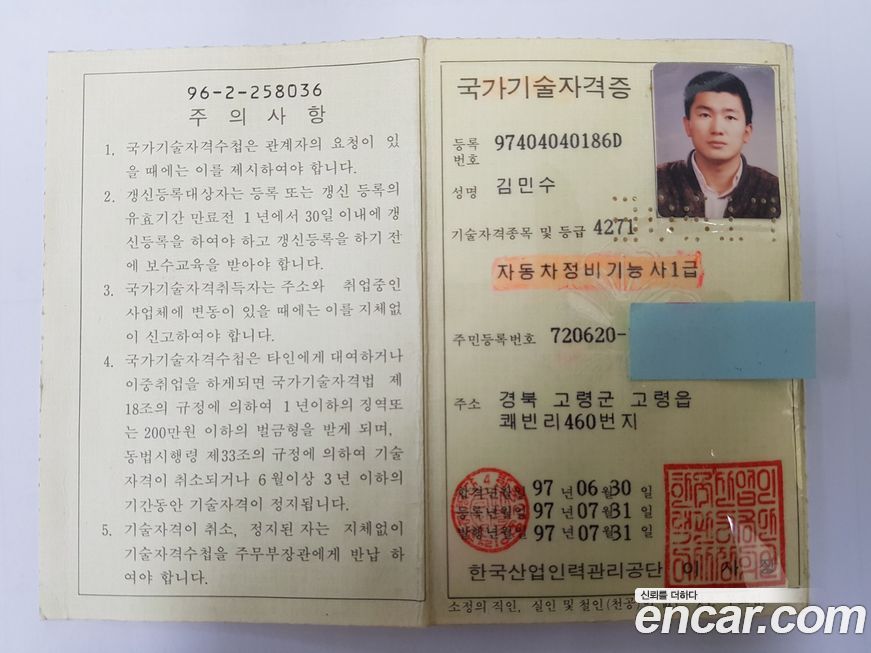 96-2-258036
주 의 사 항
1. 국가기술자격수첩은 관계자의 요청이 있
을 때에는 이를 제시하여야 합니다.
2. 갱신등록대상자는 등록 또는 갱신 등록의
유효기간 만료전 1년에서 30일 이내에 갱
신등록을 하여야 하고 갱신등록을 하기 전
에 보수교육을 받아야 합니다.
3. 국가기술자격취득자는 주소와 취업중인
사업체에 변동이 있을 때에는 이를 지체없
이 신고하여야 합니다.
4. 국가기술자격수첩은 타인에게 대여하거나
이중취업을 하게되면 국가기술자격법 제
18조의 규정에 의하여 1년이하의 징역또
는 200만원 이하의 벌금형을 받게 되며,
동법시행령 제33조의 규정에 의하여 기술
자격이 취소되거나 6월이상 3년 이하의
기간동안 기술자격이 정지됩니다.
5. 기술자격이 취소, 정지된 자는 지체없이
기술자격수첩을 주무부장관에게 반납 하
여야 합니다.
국가기술자격증
등록번호 97404040186D
성명 김민수
기술자격종목 및 등급 4271
자동차정비기능사1급
주민등록번호 720620-
주소 경북 고령군 고령읍
쾌빈리460번지
합격년월일 97 년 06 월 30 일
등록년월일 97 년 07 월 31 일
발행년월일 97 년 07 월 31 일
한국산업인력관리공단 이 사 장
소정의 직인, 실인 및 철인(천공)
신뢰를 더하다
encar.com